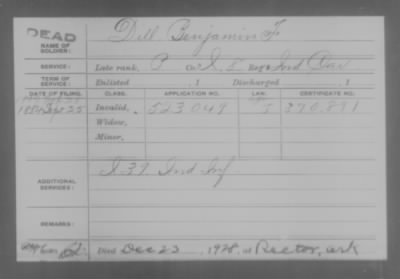 DEAD
NAME OF SOLDIER: Dill Benjamin F
SERVICE: Late rank, P Co. I, 8 Reg't Ind Cav
TERM OF SERVICE: Enlisted , 1 Discharged , 1
DATE OF FILING. CLASS. APPLICATION NO. LAW. CERTIFICATE NO.
1884 Sept 25 Invalid, 523 049 390.891
Widow,
Minor,
ADDITIONAL SERVICES: I 39 Ind Inf
REMARKS:
Died Dec 23 1928, at Rector, Ark